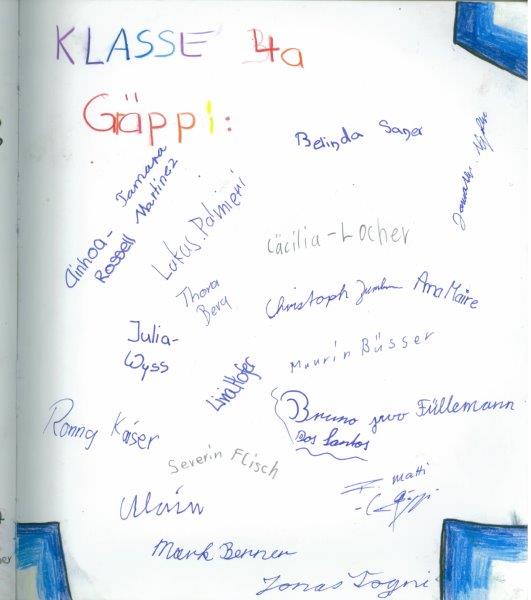 KLASSE 4a
Gräppi:
Belinda Saner
Tamara
Martinez
Ainhoa-
Rossell
Lukas. Palmieri
Cäcilia-Locher
Thora
Berg
Christoph
Ana Maire
Julia-
Wyss
Maurin Büsser
Lina Hofer
Bruno Füllemann
Dos Santos
Ronny Kaiser
Severin Flisch
F. Matti
Alain
Mark Benner
Jonas Togni